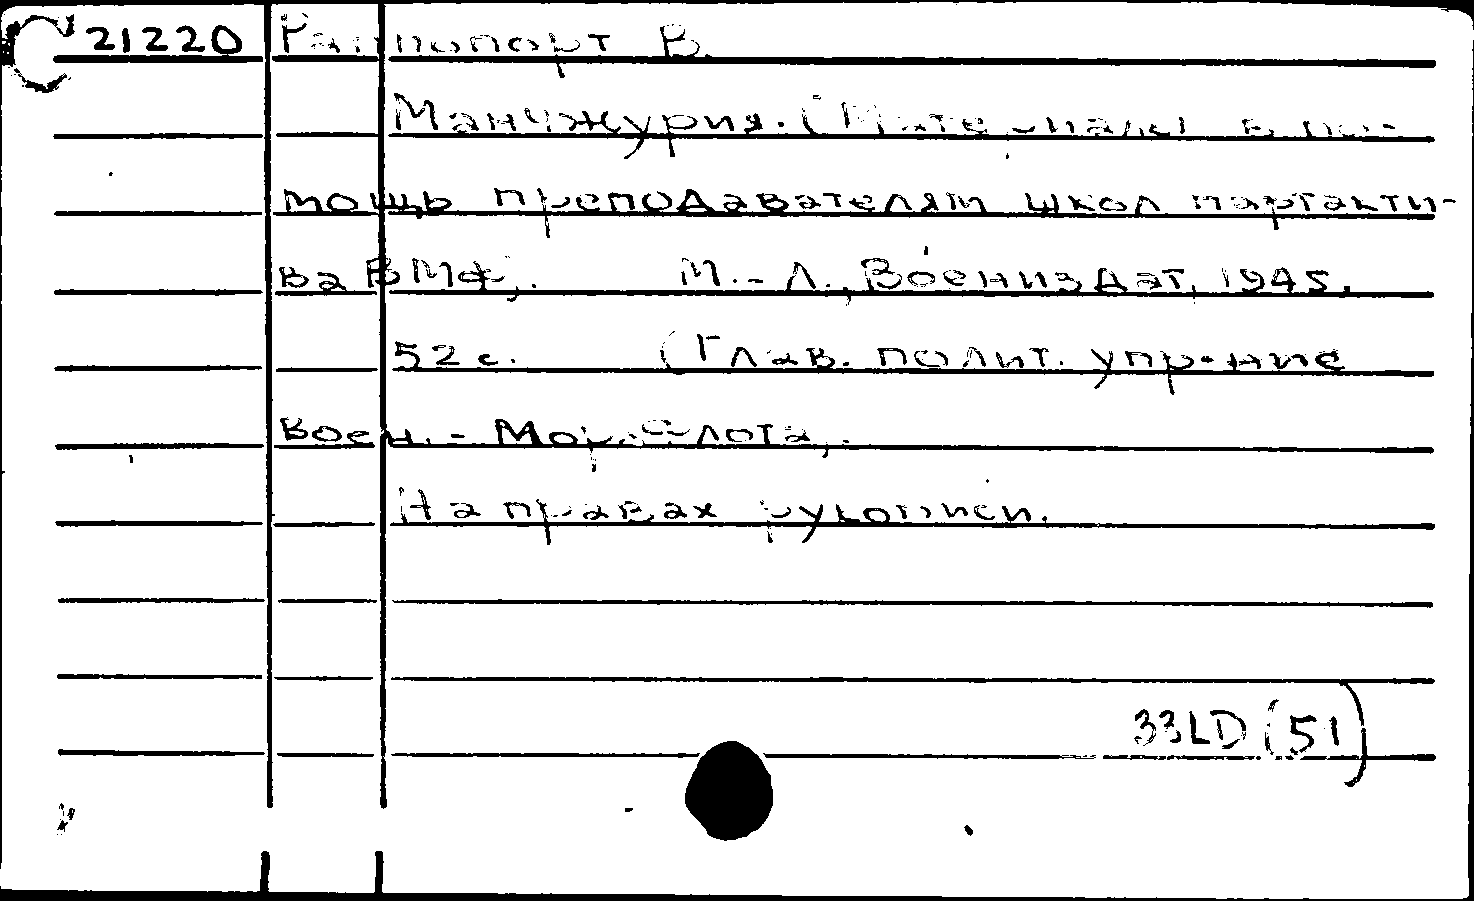 21220 Раппопорт В.
Манчжурия. (Материалы в по-
мощь преподавателям школ партакти-
ва ВМФ). М.-Л., Воениздат, 1945.
52 с. (Глав. полит. упр-ние
Воен.-Мор. Флота).
На правах рукописи.
33LD(51)